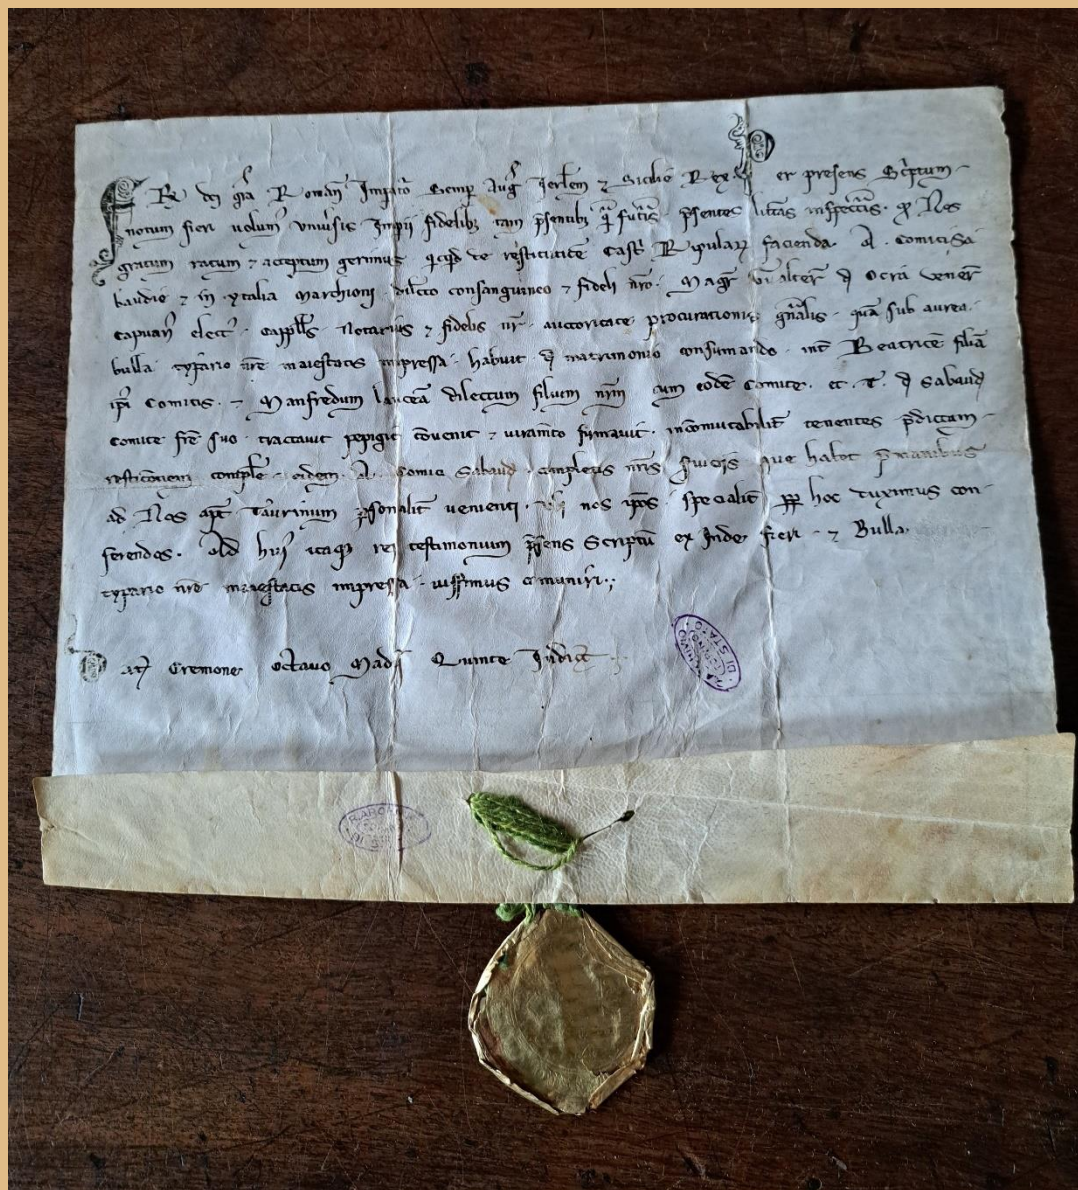 FR. dei gr̄a Romanoꝝ Imparor Semp Augꝰ Jerl̄em ⁊ Sicilie Rex. Per presens Scͥptum
notum fieri volumꝰ vniūsis Impii fidelibꝫ tam p̄sentibꝫ qͣ futͥis p̄sentes litt̄as inspectͥis. ꝙ Nos
gratum ratum ⁊ acceptum gerimus qicq̇d de restitutōē Castͥ Ripularꝝ facienda. A. Comiti Sa
baudie ⁊ in ytalia Marchioni dilc̄to consanguineo ⁊ fideli nr̄o. Magr̄ Gualterꝰ d̄ Ocra venerꝰ
capuanꝰ elect̄ꝰ. cappll̄s. Notarius ⁊ fidelis nr̄. auctoritate procurationis gn̄alis. quā sub aurea
bulla typario nr̄e maiestatis impressa. habuit d̄ matrimonio consumando. int̄ Beatricē filiā
ip̄i Comitis. ⁊ Manfredum lanceā dilectum filium nr̄m cum eodē Comite. et. T. d̄ Sabaudꝰ
comite fr̄e suo. tractauit pepigit cōuenit ⁊ iuram̄to firmauit. incōmutabilit̄ tenentes p̄dictam
ad Nos apꝰ Taurinum p̄sonalit̄ venienti. nos ip̄os specialit̄ ꝓp̄ hoc duximus con
ferendos. Ad huiꝰ itaqꝫ rei testimonium p̄sens Scriptū ex Inde fieri ⁊ Bulla
typario nr̄e maiestatis impressa. iussimus cōmuniri.;
Datꝰ Cremone Octauo Madii Quinte Indict̄
ARCHIVIO DI STATO